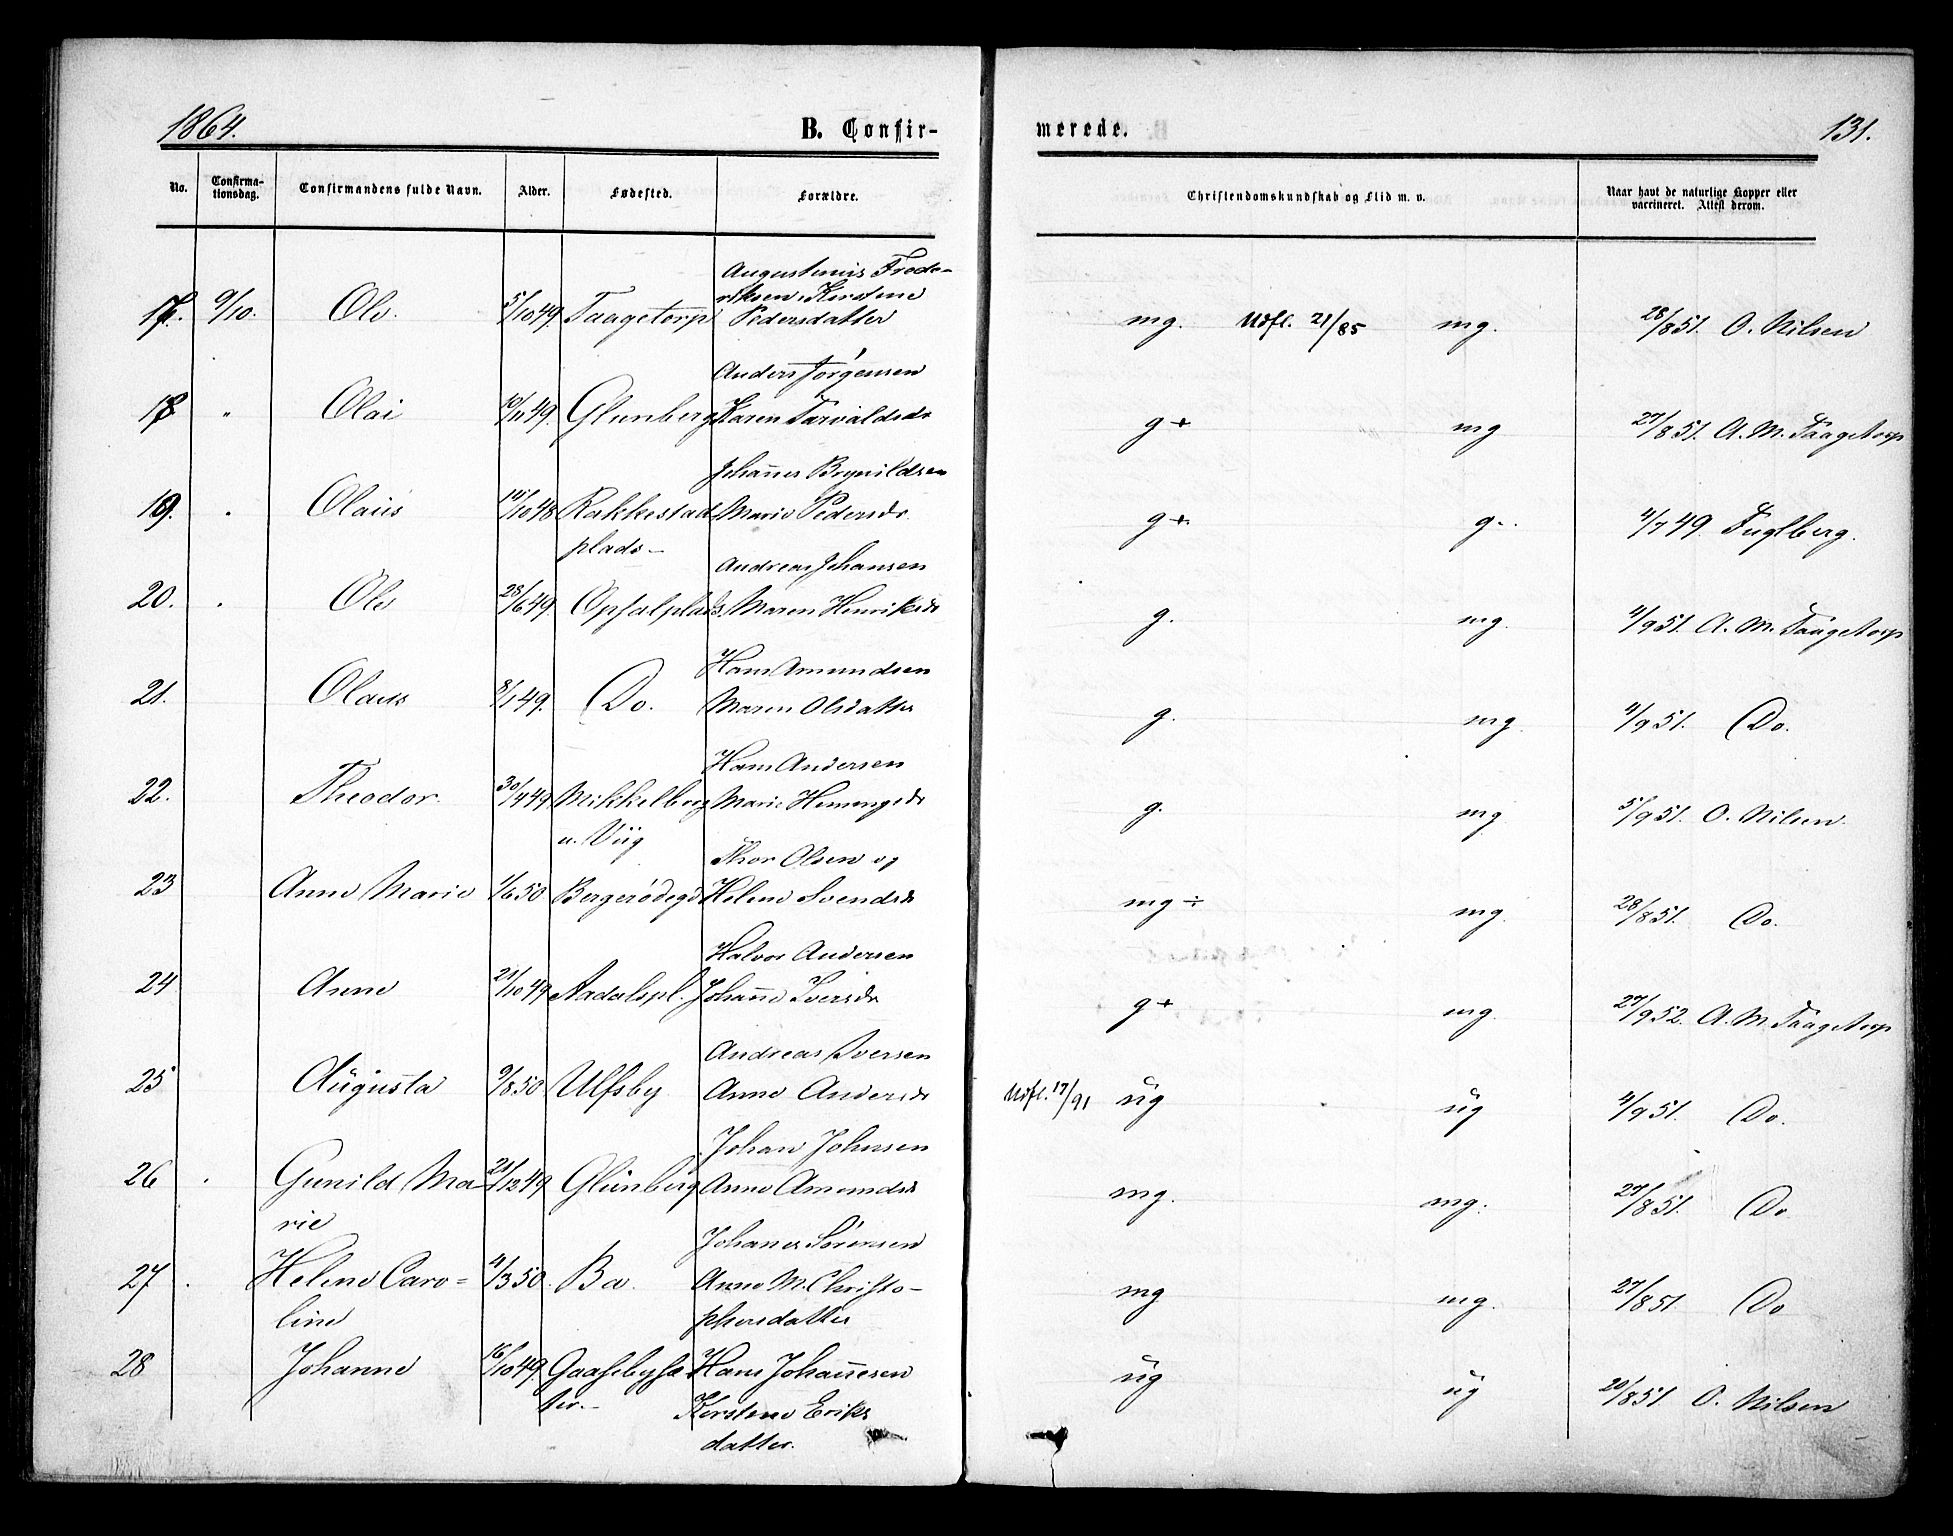 1864. B. Confir- merede. 131.
No. Confirma-tionsdag. Confirmandens fulde Navn. Alder. Fødested. Forældre. Christendomskundskab og Flid m. v. Naar havt de naturlige Kopper eller vaccineret. Attest derom.
Augustinius Frede-
riksen, Kirstine
17. 9/10. Ole. 5/10 49. Taagetorp Pedersdatter mg. Udfl. 21/85 mg. 28/8 51. O. Nilsen
Anders Jørgensen
18 " Olai 10/11 49. Glenberg Karen Tarvaldsdr g+ mg 27/8 51. A. M. Taagetorp
Johannes Brynildsen
19. " Olaus 14/10 48 Rakkestad Marie Pedersdr. g+ g. 4/7 49. Fuglberg.
plads-
Andreas Johansen
20. " Ole 28/6 49. Opsalplads, Maren Henriksdr g. mg. 4/9 51. A. M. Taagetorp
Hans Amundsen
21. Olaus 8/1 49. Do. Maren Olsdatter g. mg. 4/9 51. Do.
Hans Andersen
22. Theodor. 30/4 49. Mikkelberg Marie Hemingsdr g. mg 5/9 51. O. Nilsen.
u. Viig
Thor Olsen og
23 Anne Marie 1/6 50 Bergerødegd Helene Svendsdr mg ÷ mg. 28/8 51. Do.
Halvor Andersen
24 Anne 21/10 49 Aadalspl. Johanne Iversdr g+ mg. 27/9 52. A. M. Taagetorp
Andreas Iversen
25 Augusta 9/8 50. Ulfsby Anne Andersdr Udfl. 17/91 ug ug 4/9 51. Do.
Johan Johnsen
26 . Gunild Ma- 21/12 49 Glenberg Anne Amundsdr mg. mg. 27/8 51. Do
rie
Johanes Sørensen
27 . Helene Caro= 4/3 50. Ba. Anne M. Christo-
line phersdatter mg mg. 27/8 51. Do
28 Johanne 16/10 49. Gaasebysæ- Hans Johannesen ug ug 20/8 51. O. Nilsen
ter.- Kirstene Eriks
datter.